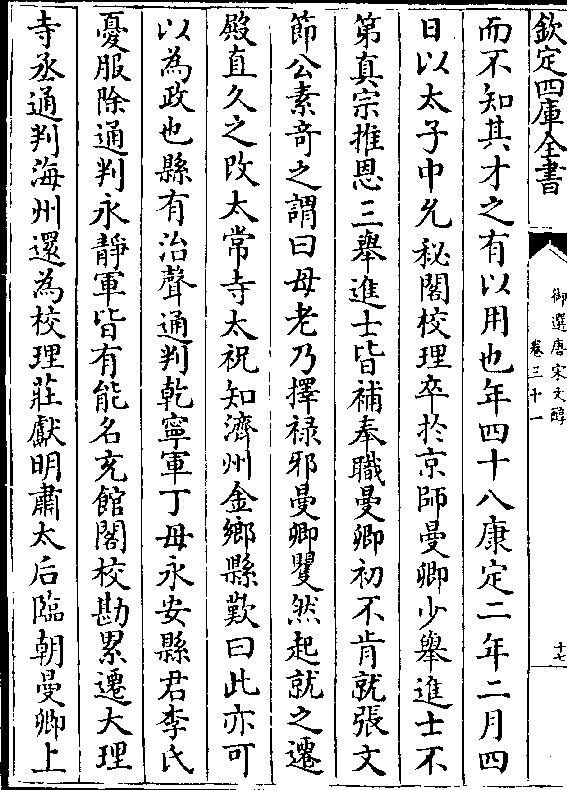 欽定四庫全書
御選唐宋文醇
卷三十一
十七
而不知其才之有以用也年四十八康定二年二月四
日以太子中允秘閣校理卒於京師曼卿少舉進士不
第真宗推恩三舉進士皆補奉職曼卿初不肯就張文
節公素奇之謂曰母老乃擇禄邪曼卿矍然起就之遷
殿直久之改太常寺太祝知濟州金鄉縣歎曰此亦可
以為政也縣有治聲通判乾寧軍丁母永安縣君李氏
憂服除通判永靜軍皆有能名充館閣校勘累遷大理
寺丞通判海州還為校理莊獻明肅太后臨朝曼卿上